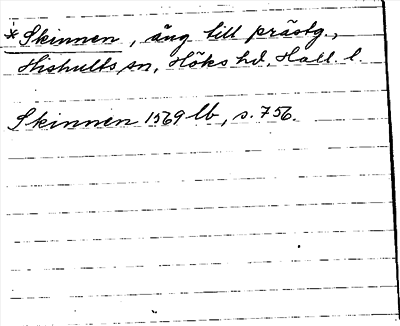 *Skinnen, äng till prästg.,
Hishults sn, Höks hd, Hall. l.
Skinnen 1569 lb, s. 756.